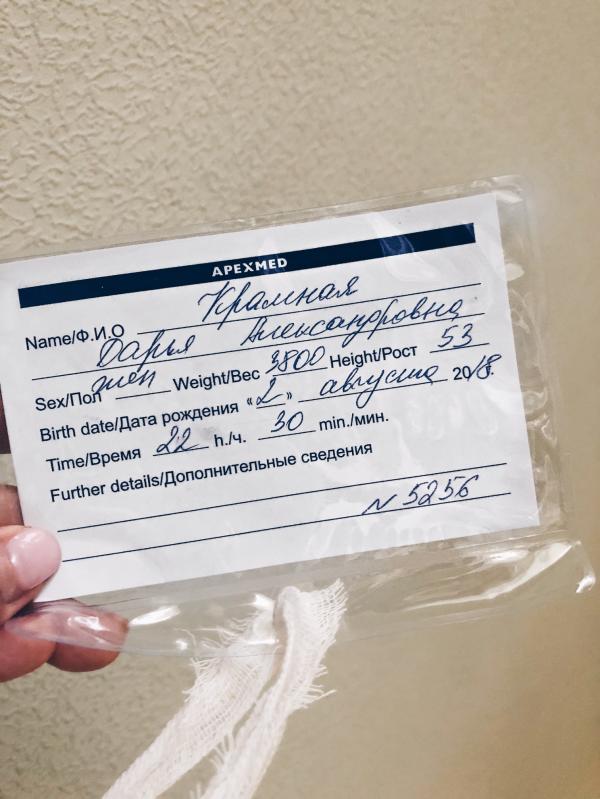 APEXMED
Name/Ф.И.О Крамная
Дарья Александровна
Sex/Пол жен Weight/Вес 3800 Height/Рост 53
Birth date/Дата рождения «2» августа 2018г.
Time/Время 22 h./ч. 30 min./мин.
Further details/Дополнительные сведения
N 5256